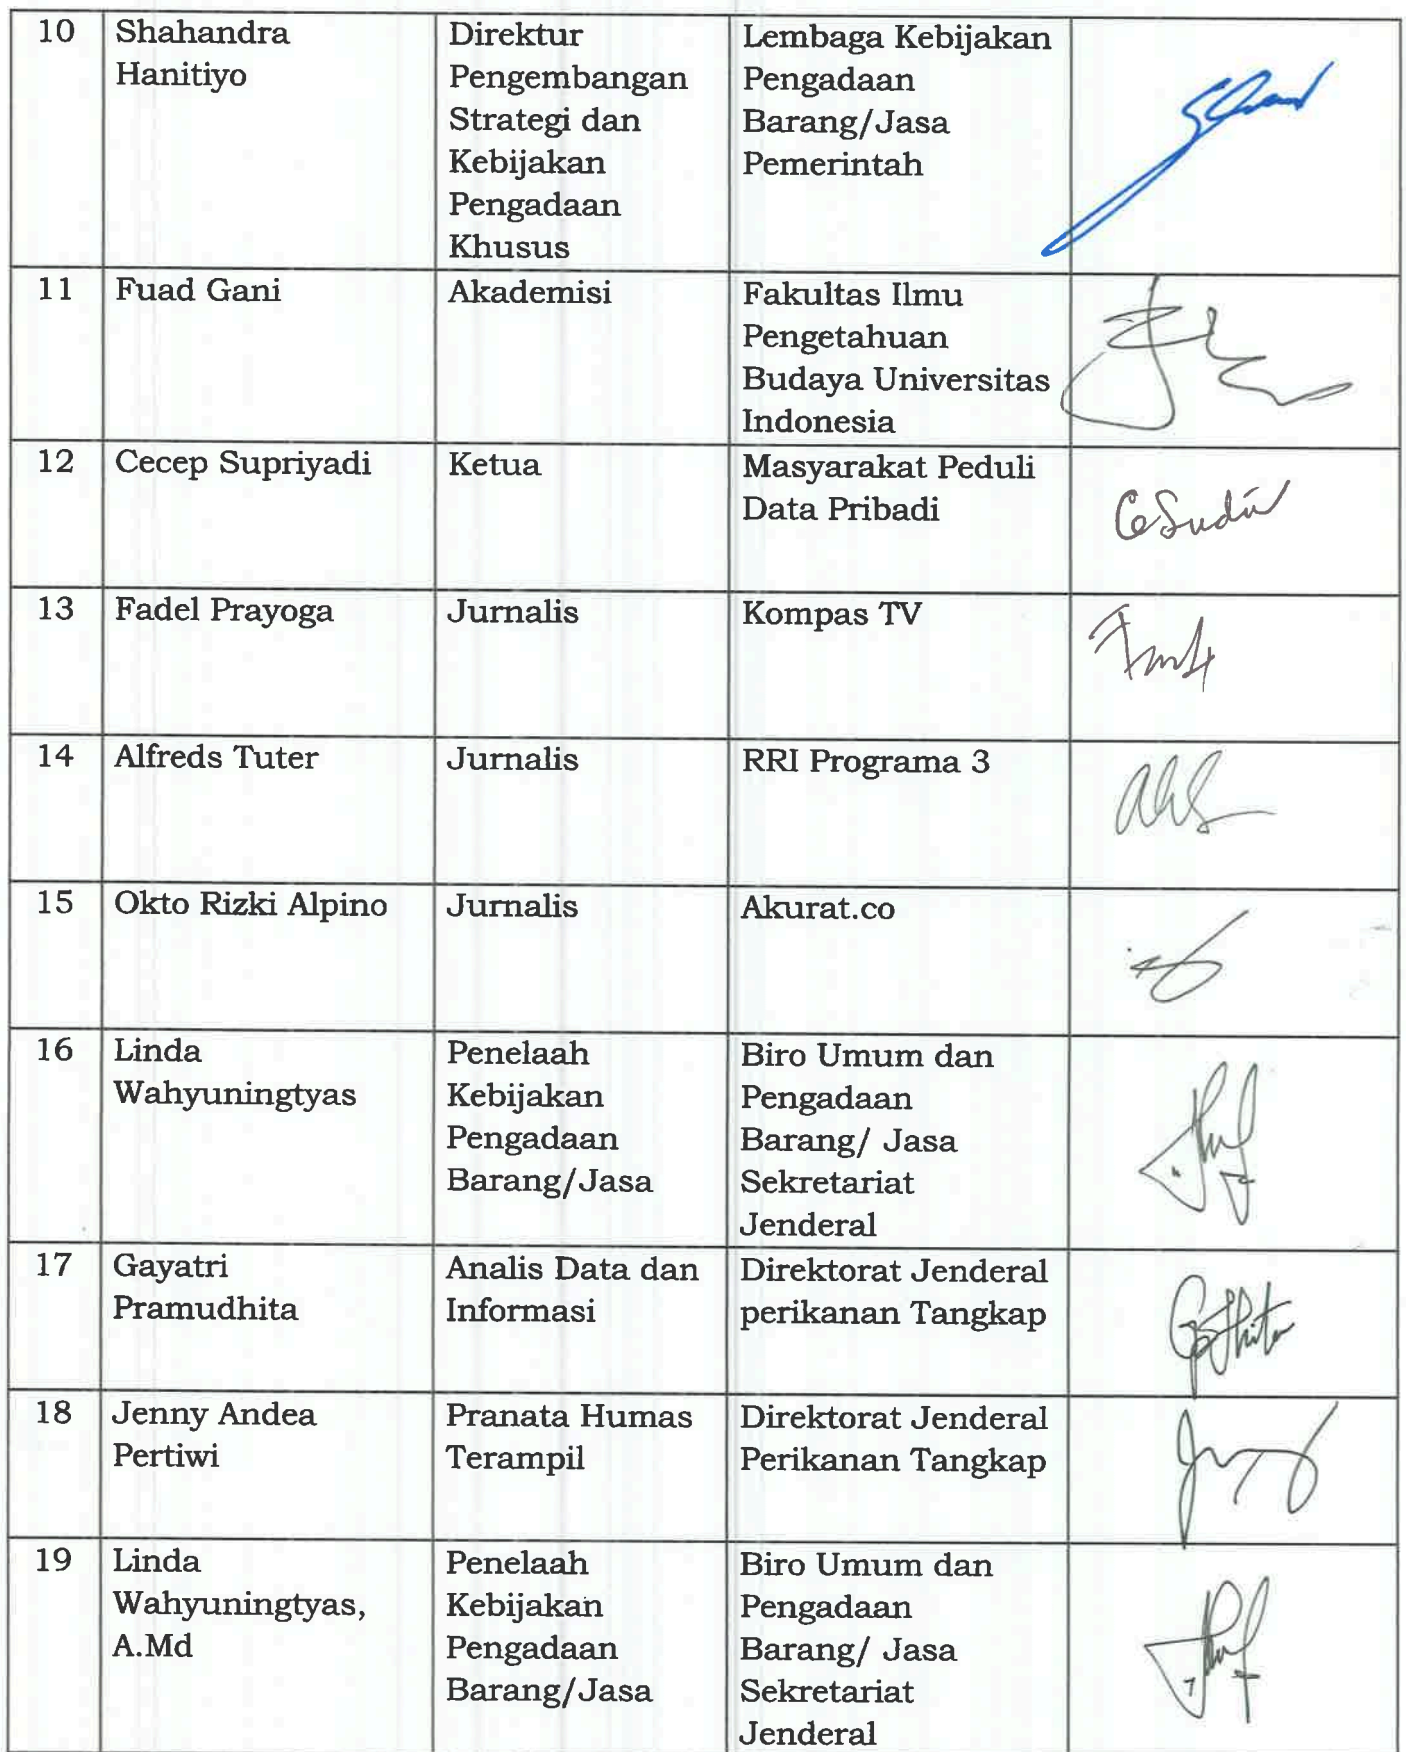 10
Shahandra
Hanitiyo
Direktur
Pengembangan
Strategi dan
Kebijakan
Pengadaan
Khusus
Lembaga Kebijakan
Pengadaan
Barang/Jasa
Pemerintah
11
Fuad Gani
Akademisi
Fakultas Ilmu
Pengetahuan
Budaya Universitas
Indonesia
12
Cecep Supriyadi
Ketua
Masyarakat Peduli
Data Pribadi
13
Fadel Prayoga
Jurnalis
Kompas TV
14
Alfreds Tuter
Jurnalis
RRI Programa 3
15
Okto Rizki Alpino
Jurnalis
Akurat.co
16
Linda
Wahyuningtyas
Penelaah
Kebijakan
Pengadaan
Barang/Jasa
Biro Umum dan
Pengadaan
Barang/ Jasa
Sekretariat
Jenderal
17
Gayatri
Pramudhita
Analis Data dan
Informasi
Direktorat Jenderal
perikanan Tangkap
18
Jenny Andea
Pertiwi
Pranata Humas
Terampil
Direktorat Jenderal
Perikanan Tangkap
19
Linda
Wahyuningtyas,
A.Md
Penelaah
Kebijakan
Pengadaan
Barang/Jasa
Biro Umum dan
Pengadaan
Barang/ Jasa
Sekretariat
Jenderal